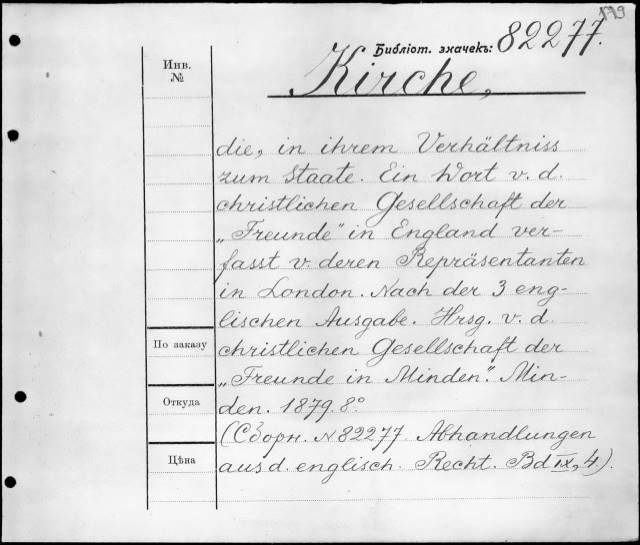 179
Библіот. значекъ: 82277.
Инв.
№
Kirche,
die, in ihrem Verhältniss
zum Staate. Ein Wort v. d.
christlichen Gesellschaft der
„Freunde" in England ver-
fasst v. deren Repräsentanten
in London. Nach der 3 eng-
lischen Ausgabe. Hrsg. v. d.
По заказу
christlichen Gesellschaft der
„Freunde in Minden". Min-
Откуда
den. 1879. 8º
(Сборн. № 82277. Abhandlungen
Цѣна
aus d. englisch. Recht. Bd IX, 4).